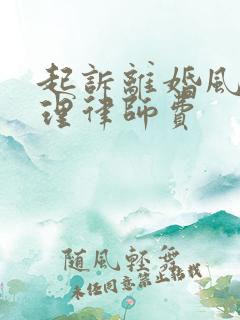 起訴離婚風
理律師費
随風輕舞
未经同意禁止转载